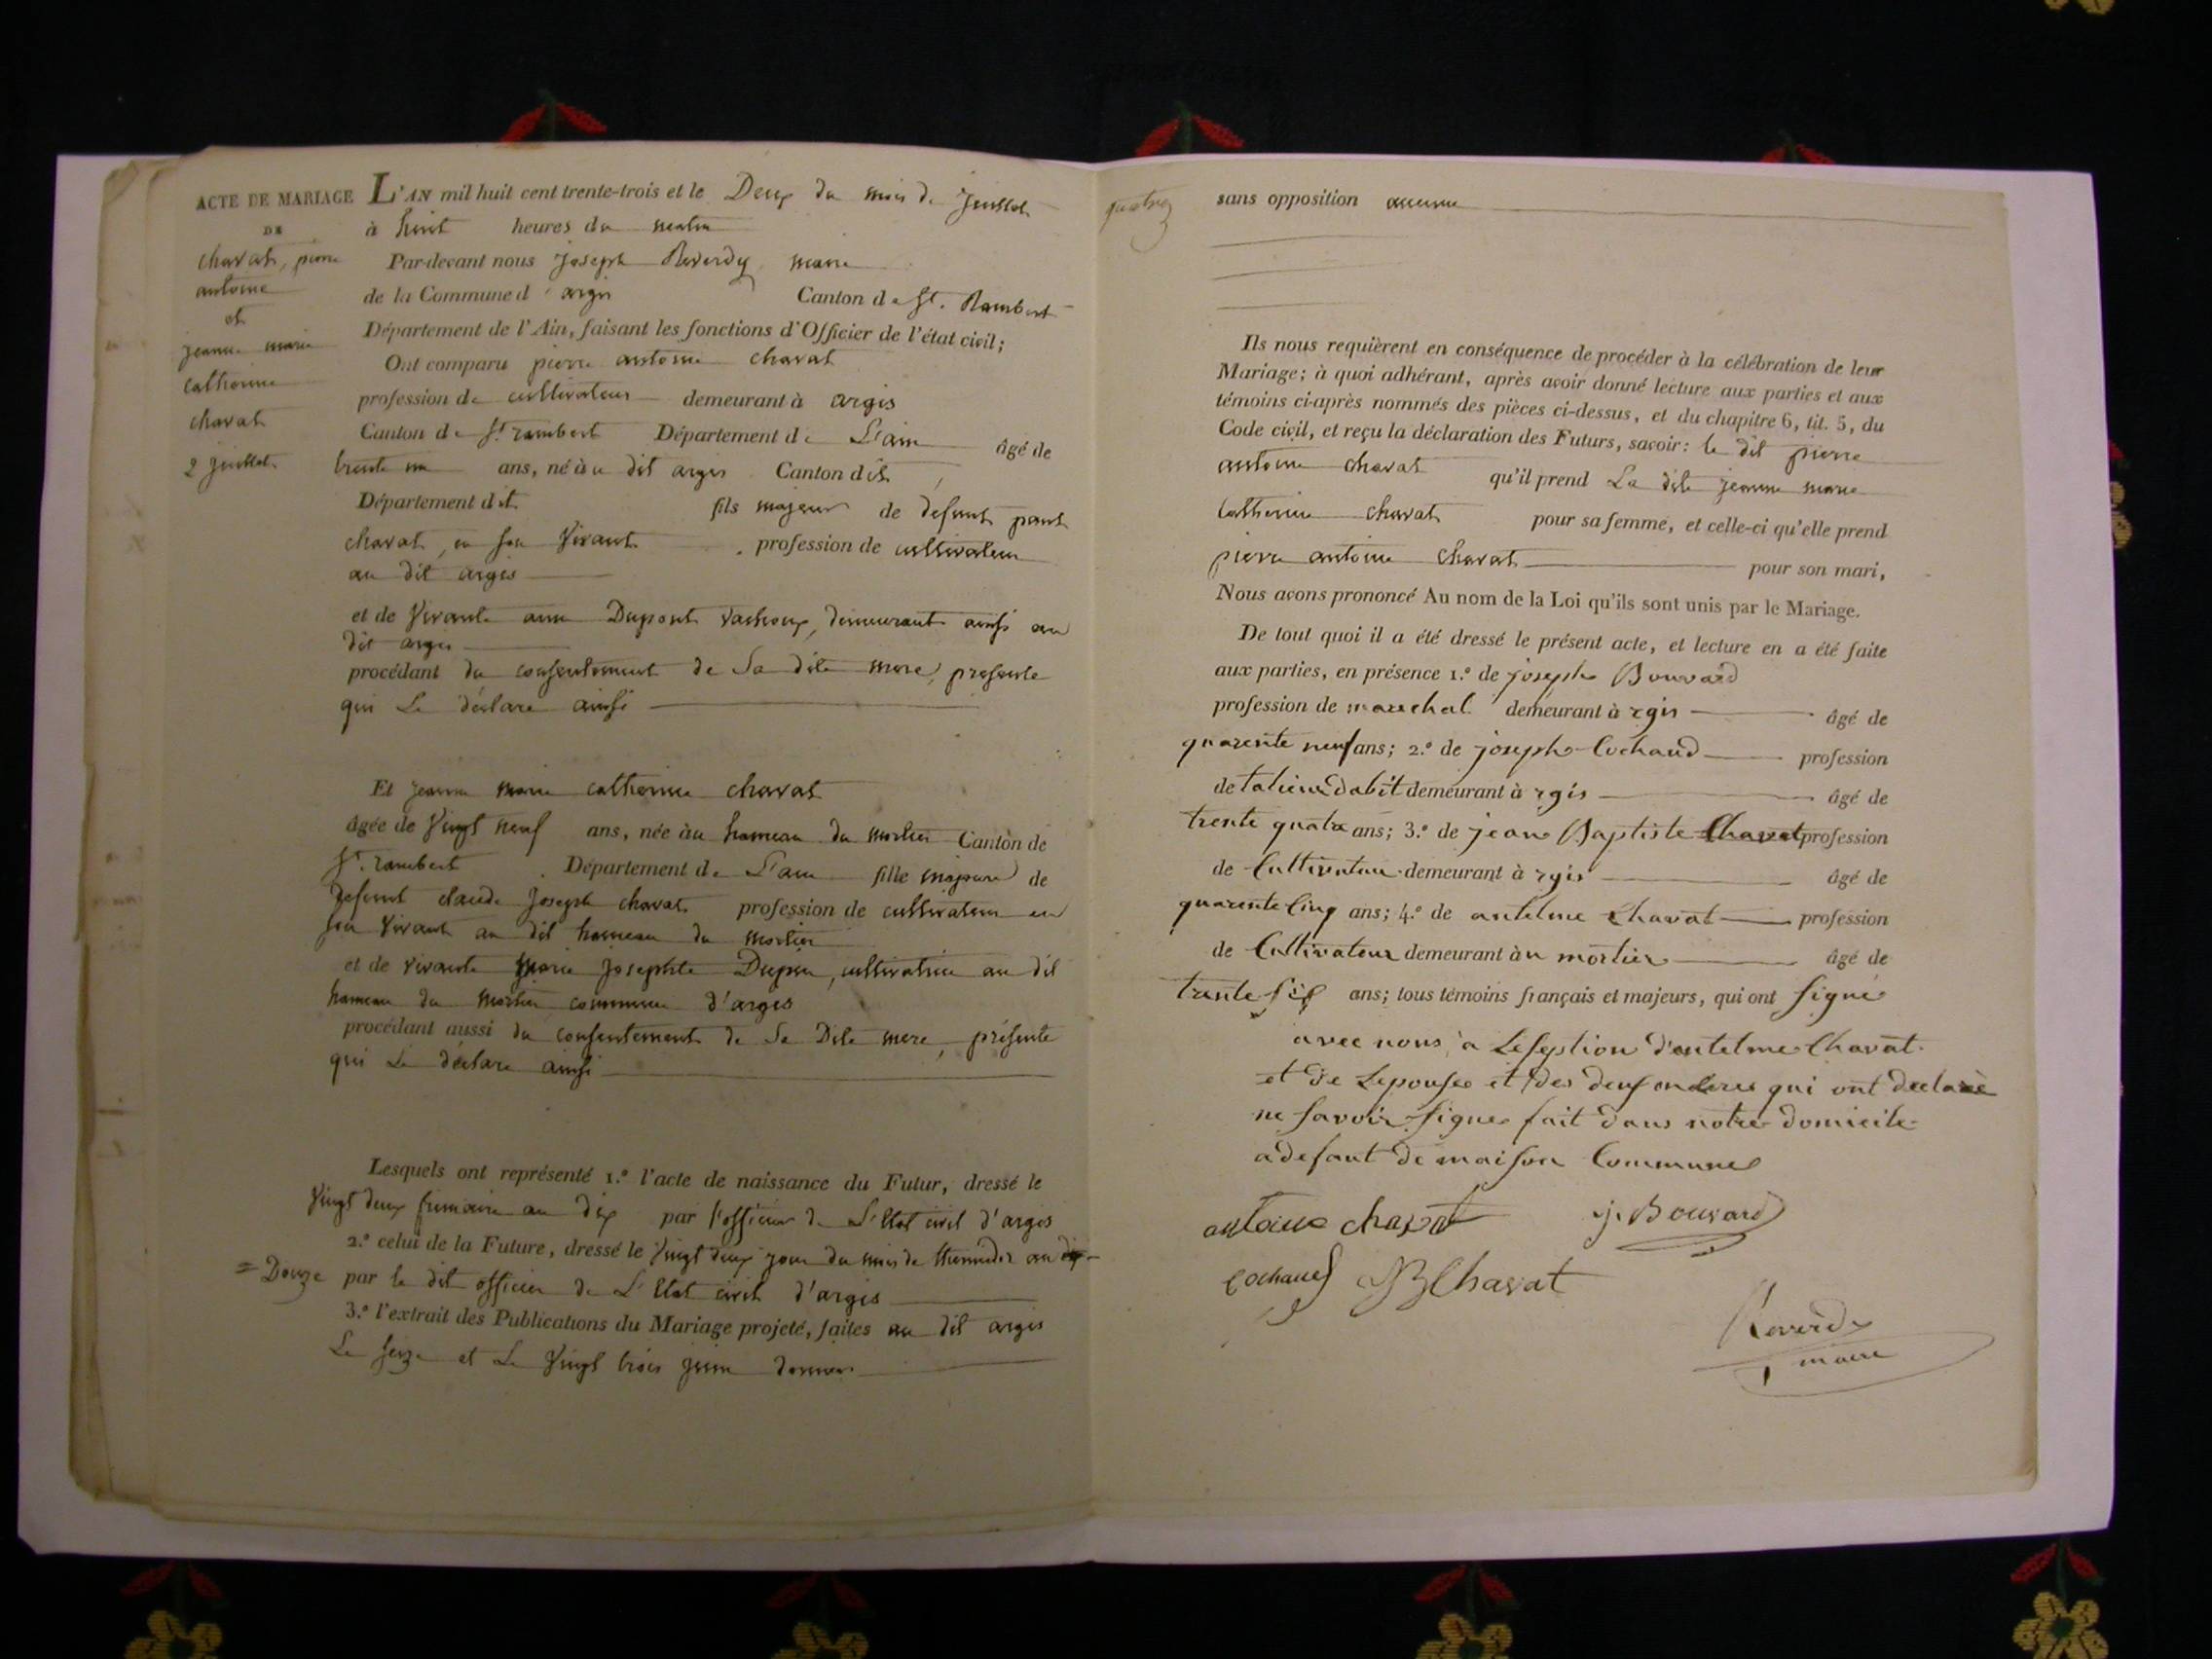 ACTE DE MARIAGE
DE
chavat, pierre
antoine
et
jeanne marie
catherine
chavat
2 juillet
L'AN mil huit cent trente-trois et le Deux du mois de juillet
à huit heures du matin
Par-devant nous joseph Reverdy maire
de la Commune d'argis Canton de St. Rambert
Département de l'Ain, faisant les fonctions d'Officier de l'état civil;
Ont comparu pierre antoine chavat
profession de cultivateur demeurant à argis
Canton de St rambert Département de L'ain âgé de
trente un ans, né àu dit argis Canton dit
Département dit fils majeur de defunt
chavat, en son vivant profession de cultivateur
au dit argis
et de vivante anne Dupont demeurant aussi au
dit argis
procédant du consentement de Sa dite mere, presente
qui Le déclare ainsi
Et jeanne marie catherine chavat
âgée de vingt neuf ans, née àu hameau du mortier Canton de
St. rambert Département de L'ain fille majeure de
defunt claude Joseph chavat profession de cultivateur en
son vivant au dit hameau du mortier
et de vivante marie josephte cultivatrice au dit
hameau du mortier commune d'argis
procédant aussi du consentement de Sa Dite mere, présente
qui Le déclare ainsi
Lesquels ont représenté 1.º l'acte de naissance du Futur, dressé le
vingt deux frimaire an dix par l'officier de L'Etat civil d'argis
2.º celui de la Future, dressé le vingt deux jour du mois de thermidor an
= Douze par le dit officier de L'Etat civil d'argis
3.º l'extrait des Publications du Mariage projeté, faites au dit argis
Le seize et Le vingt trois juin dernier
quatre
sans opposition aucune
Ils nous requièrent en conséquence de procéder à la célébration de leur
Mariage; à quoi adhérant, après avoir donné lecture aux parties et aux
témoins ci-après nommés des pièces ci-dessus, et du chapitre 6, tit. 5, du
Code civil, et reçu la déclaration des Futurs, savoir: le dit pierre
antoine chavat qu'il prend La dite jeanne marie
Catherine chavat pour sa femme, et celle-ci qu'elle prend
pierre antoine chavat pour son mari,
Nous avons prononcé Au nom de la Loi qu'ils sont unis par le Mariage.
De tout quoi il a été dressé le présent acte, et lecture en a été faite
aux parties, en présence 1.º de joseph Bouvard
profession de marechal demeurant à rgis âgé de
quarente neuf ans; 2.º de joseph Cochaud profession
de talieur dabit demeurant à rgis âgé de
trente quatre ans; 3.º de jean Baptiste Chavat profession
de Cultivateur demeurant à rgis âgé de
quarente cinq ans; 4.º de antelme Chavat profession
de Cultivateur demeurant àu mortier âgé de
trente six ans; tous témoins français et majeurs, qui ont signé
avec nous à Lesseption d'antelme Chavat
et de Lepouse et des deux meres qui ont declaré
ne savoir signer fait dans notre domicile
a defaut de maison Commune
antoine chavat J. Bouvard
Cochaud JB Chavat
Reverdy
maire